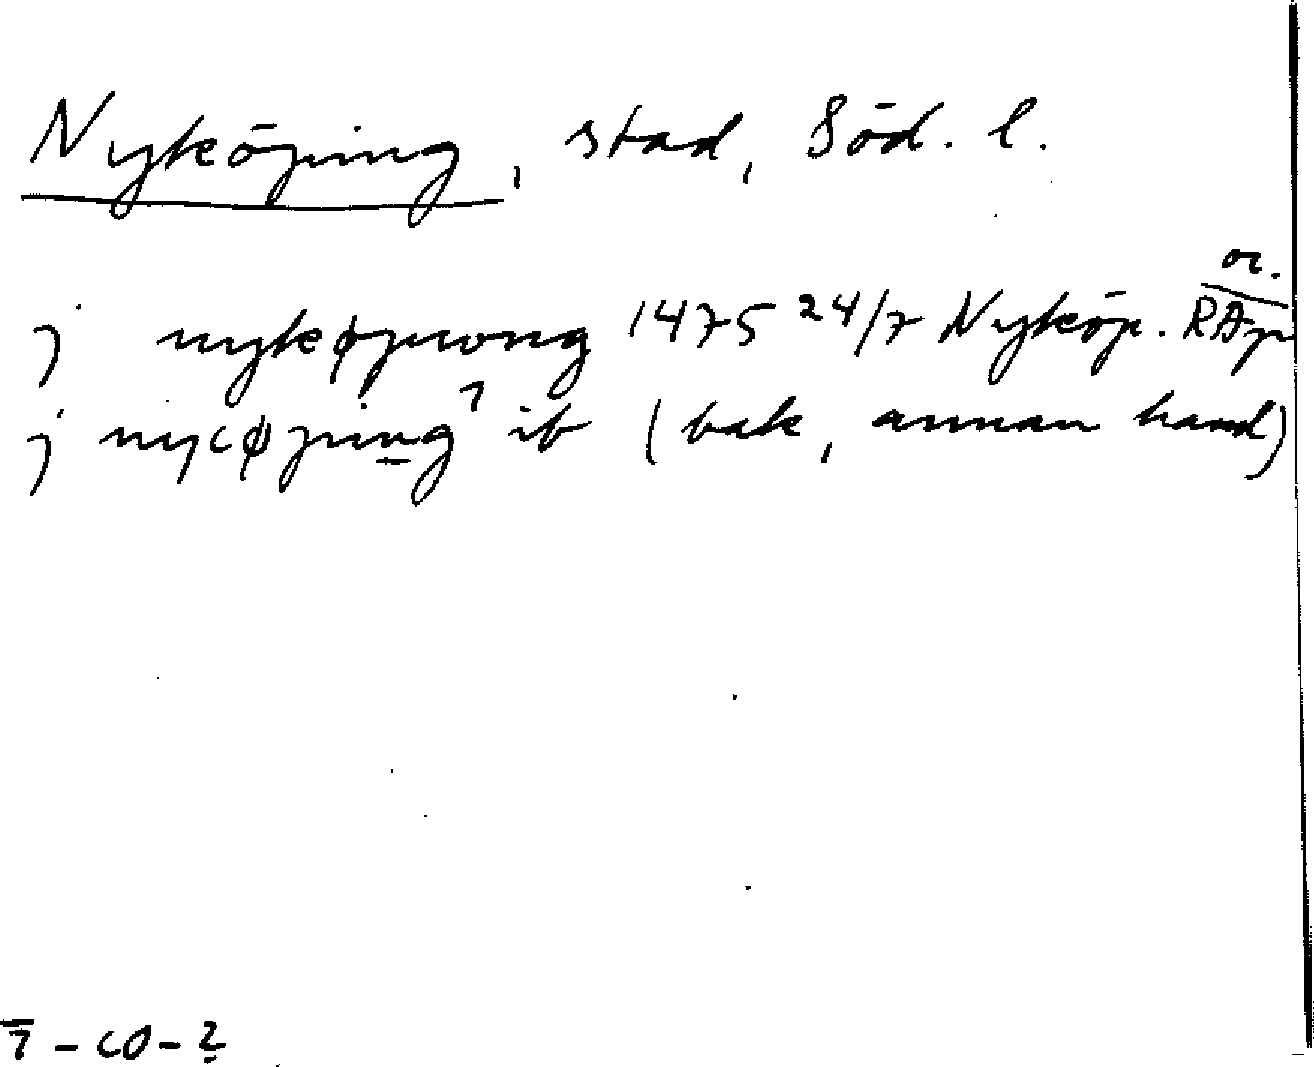 Nyköping, stad, Söd. l.
or.
j nykøpwng 1475 24/7 Nyköp. RAp
j nycøping ib (bak, annan hand)